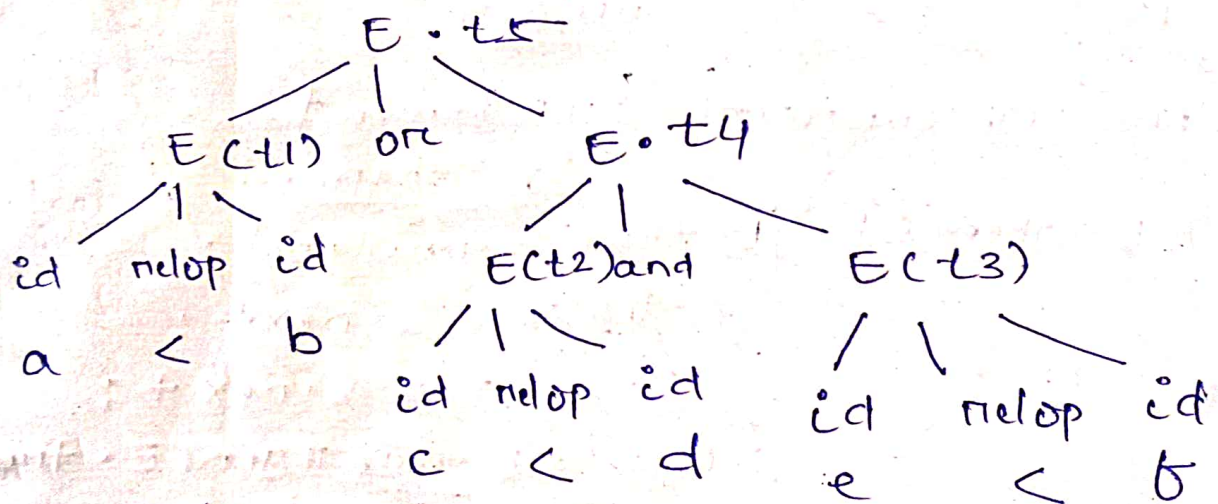 E . t5
E (t1) or E . t4
id relop id E(t2) and E(t3)
a < b
id relop id id relop id
c < d e < f